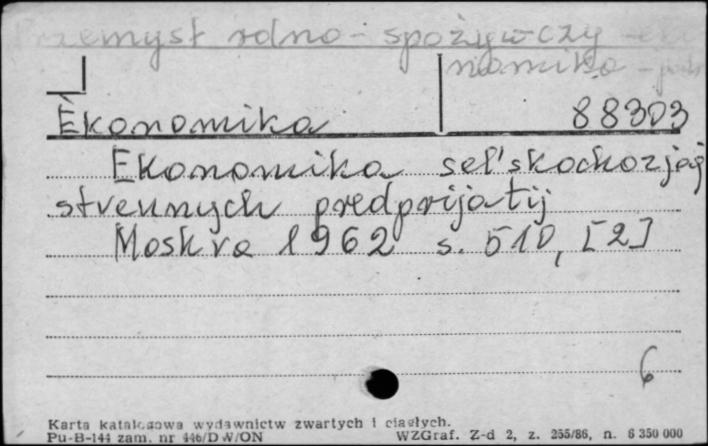 Przemysł rolno - spożywczy - eko
nomika - podr
Èkonomika 88303
Ekonomika sel'skochozjaj
stvennych predprijatij
Moskva 1962 s. 510, [2]
6
Karta katalogowa wydawnictw zwartych i ciągłych.
Pu-B-144 zam. nr 446/DW/ON WZGraf. Z-d 2, z. 255/86, n. 6 350 000